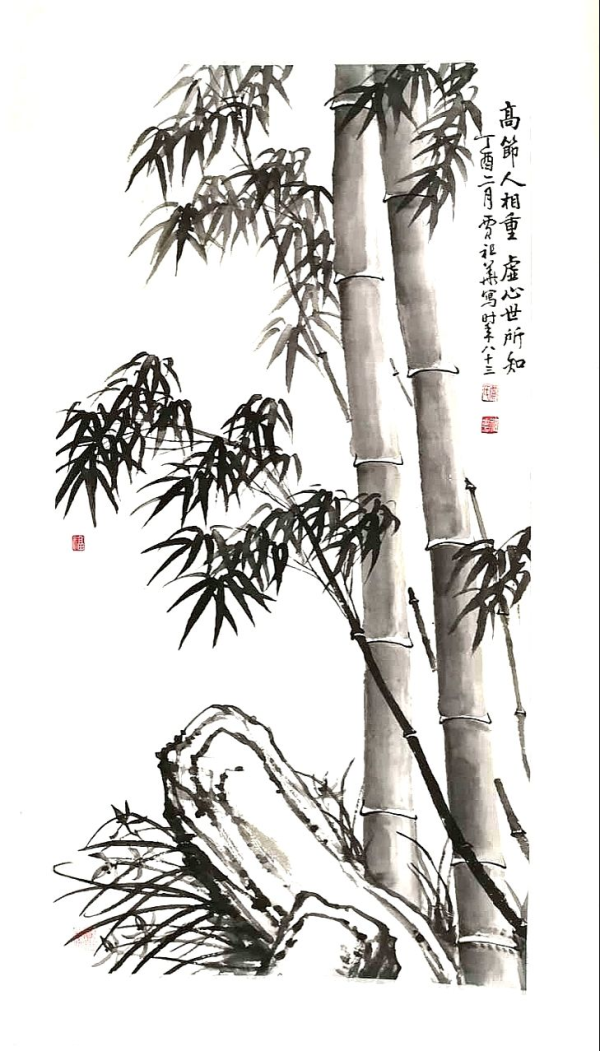 高節人相重 虛心世所知
丁酉二月賈祖華寫時年八十三